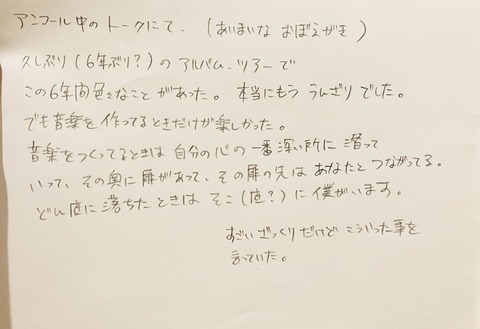 アンコール中のトークにて、(あいまいな おぼえがき)
久しぶり(6年ぶり?)の アルバム、ツアーで
この6年間色々なことがあった。本当にもう うんざりでした。
でも音楽を作ってるときだけが楽しかった。
音楽をつくってるときは 自分の心の 一番深い所に 潜って
いって、その奥に扉があって、その扉の先は あなたと つながってる。
どん底に落ちたときは そこ(底?)に僕がいます。
すごいざっくりだけど こういった事を
言っていた。